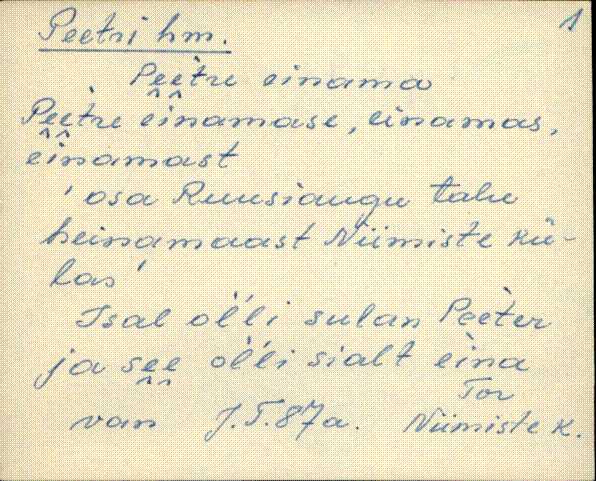 1
Peetri hm.
Peètre einama
Peètre einamase, einamas,
einamast
'osa Ruusiaugu talu
heinamaast Niimiste kü-
las'
Isal oĺli sulan Peèter
ja see oĺli sialt eìna
van J.T. 87a. Tor
Niimiste k.